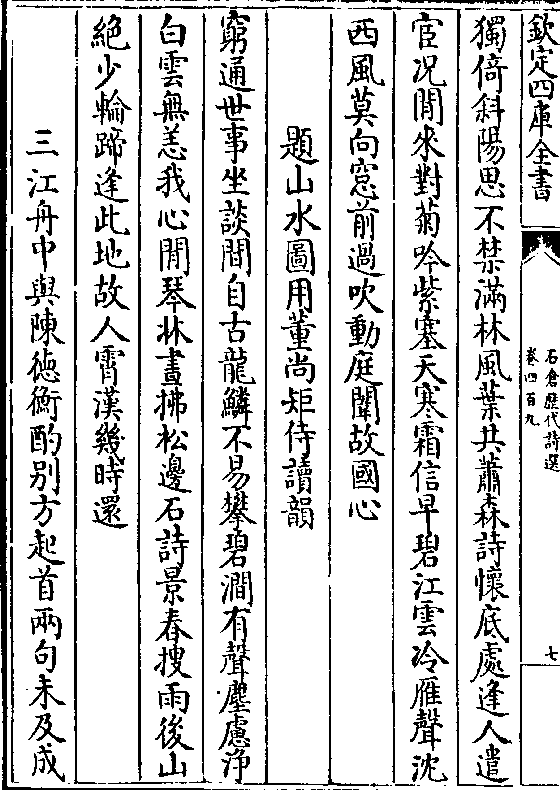 欽定四庫全書
石倉歷代詩選
卷四百九
七
獨倚斜陽思不禁滿林風葉共蕭森詩懷底處逢人遣
宦况閒來對菊吟紫塞天寒霜信早碧江雲冷雁聲沈
西風莫向窓前過吹動庭闈故國心
題山水圖用董尚矩侍讀韻
窮通世事坐談間自古龍鱗不易攀碧澗有聲塵慮浄
白雲無恙我心閒琴牀晝拂松邊石詩景春搜雨後山
絶少輪蹄逢此地故人霄漢幾時還
三江舟中與陳德衡酌别方起首兩句未及成